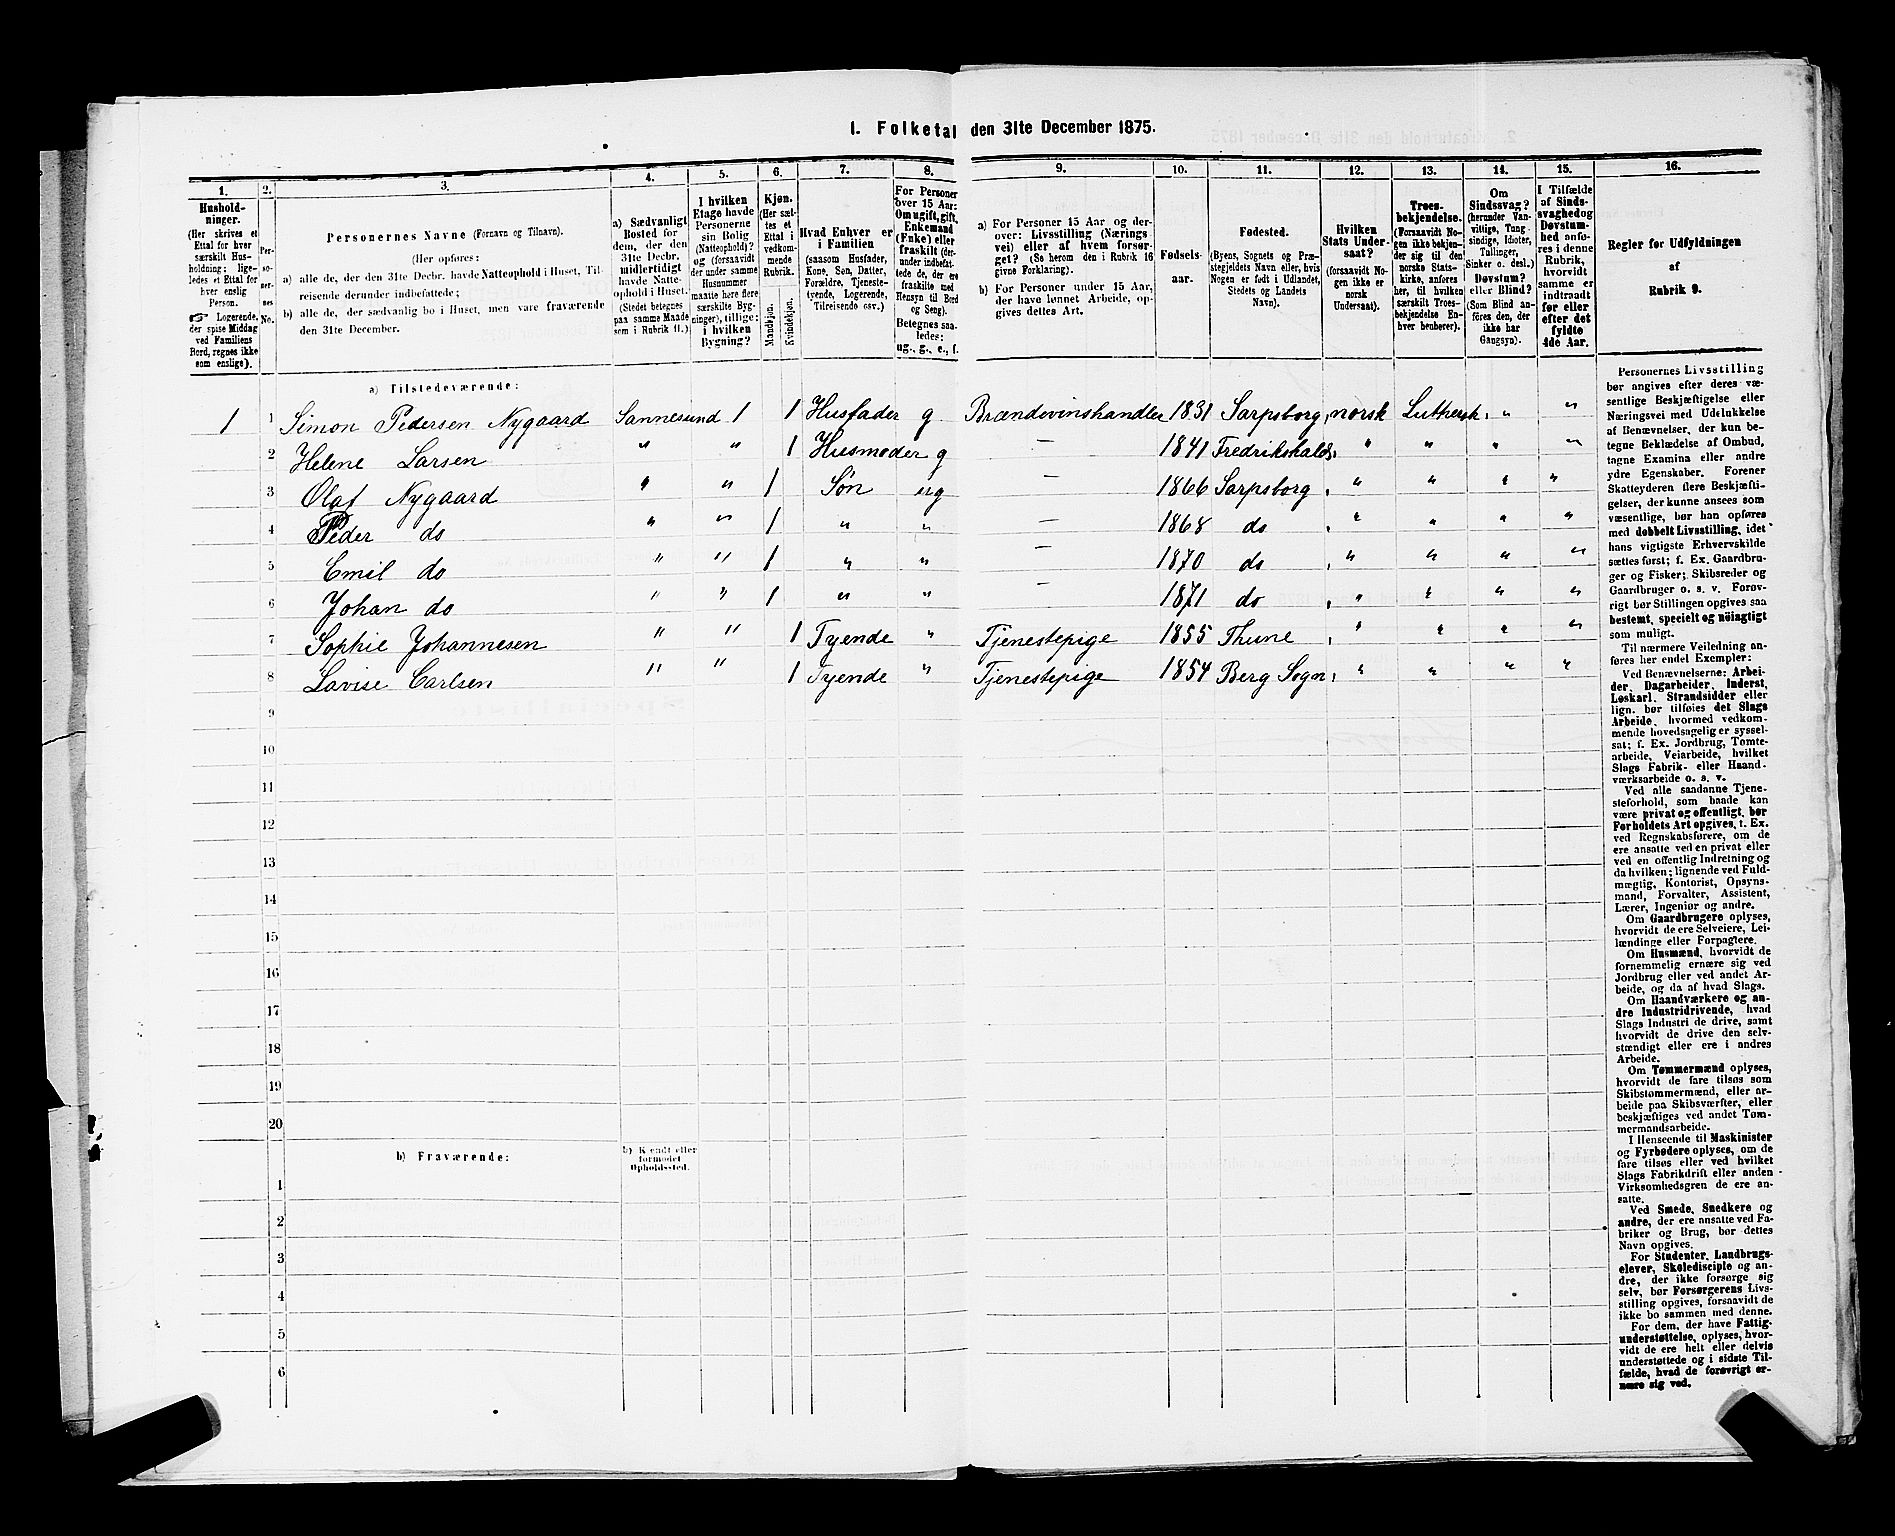 1. Folketal den 31te December 1875.
1. 2. 3. 4. 5. 6. 7. 8. 9. 10. 11. 12. 13. 14. 15. 16.
Husholdninger.
(Her skrives et
Ettal for hver
særskilt Hus-
holdning; lige-
ledes et Ettal for
hver enslig
Person.
☞ Logerende,
der spise Middag
ved Familiens
Bord, regnes ikke
som enslige).
Per-
so-
ner-
nes
No.
Personernes Navne (Fornavn og Tilnavn).
(Her opføres:
a) alle de, der den 31te Decbr. havde Natteophold i Huset, Til-
reisende derunder indbefattede;
b) alle de, der sædvanlig bo i Huset, men vare fraværende
den 31te December.
a) Sædvanligt
Bosted for
dem, der den
31te Decbr.
midlertidigt
havde Natte-
ophold i Huset.
(Stedet betegnes
paa samme Maade
som i Rubrik 11.)
I hvilken
Etage havde
Personerne
sin Bolig
(Natteophold)?
og (forsaavidt
der under samme
Husnummer
maatte høre flere
særskilte Byg-
ninger), tillige:
i hvilken
Bygning?
Kjøn.
(Her sæt-
tes et
Ettal i
vedkom-
mende
Rubrik.
Mandkjøn.
Kvindekjøn.
Hvad Enhver er
i Familien
(saasom Husfader,
Kone, Søn, Datter,
Forældre, Tjeneste-
tyende, Logerende,
Tilreisende osv.)
For Personer
over 15 Aar:
Om ugift, gift,
Enkemand
(Enke) eller
fraskilt (der-
under indbefat-
tede de, der ere
fraskilte med
Hensyn til Bord
og Seng).
Betegnes saa-
ledes:
ug., g., e., f.
a) For Personer 15 Aar og der-
over: Livsstilling (Nærings-
vei) eller af hvem forsør-
get? (Se herom den i Rubrik 16
givne Forklaring).
b) For Personer under 15 Aar,
der have lønnet Arbeide, op-
gives dettes Art.
Fødsels-
aar.
Fødested.
(Byens, Sognets og Præ-
stegjeldets Navn eller, hvis
Nogen er født i Udlandet,
Stedets og Landets
Navn).
Hvilken
Stats Under-
saat?
(forsaavidt No-
gen ikke er
norsk
Undersaat).
Troes-
bekjendelse.
(Forsaavidt No-
gen ikke bekjen-
der sig til den
norske Stats-
kirke, anføres
her, til hvilken
særskilt Troes-
bekjendelse En-
hver henhører).
Om
Sindssvag?
(herunder Van-
vittige, Tung-
sindige, Idioter,
Tullinger,
Sinker o. desl.)
Døvstum?
eller Blind?
(Som Blind an-
føres den, der
ikke har
Gangsyn).
I Tilfælde
af Sinds-
svaghed og
Døvstum-
hed anfø-
res i denne
Rubrik,
hvorvidt
samme er
indtraadt
før eller
efter det
fyldte
4de Aar.
Regler for Udfyldningen
af
Rubrik 9.
a) Tilstedeværende:
1 1 Simon Pedersen Nygaard Sannesund 1 1 Husfader g Brændevinshandler 1831 Sarpsborg, norsk Luthersk. " "
2 Helene Larsen " " 1 Husmoder g — 1841 Fredrikshald, " " " "
3 Olaf Nygaard " " 1 Søn ug — 1866 Sarpsborg, " " " "
4 Peder do " " 1 " " — 1868 do, " " " "
5 Emil do " " 1 " " — 1870 do " " " "
6 Johan do " " 1 " " — 1871 do, " " " "
7 Sophie Johannesen " " 1 Tyende " Tjenestepige 1855 Thune, " " " "
8 Lavise Carlsen " " 1 Tyende " Tjenestepige 1854 Berg Sogn, " " " "
9
10
11
12
13
14
15
16
17
18
19
20
b) Fraværende:
b) Kjendt eller
formodet
Opholdssted.
1
2
3
4
5
6
Personernes Livsstilling
bør angives efter deres væ-
sentlige Beskjæftigelse eller
Næringsvei med Udelukkelse
af Benævnelser, der kun be-
tegne Beklædelse af Ombud,
tagne Examina eller andre
ydre Egenskaber. Forener
Skatteyderen flere Beskjæfti-
gelser, der kunne ansees som
væsentlige, bør han opføres
med dobbelt Livsstilling, idet
hans vigtigste Erhvervskilde
sættes først; f. Ex. Gaardbru-
ger og Fisker; Skibsreder og
Gaardbruger o. s. v. Forøv-
rigt bør Stillingen opgives saa
bestemt, specielt og nøiagtigt
som muligt.
Til nærmere Veiledning an-
føres her endel Exempler:
Ved Benævnelserne: Arbei-
der, Dagarbeider, Inderst,
Løskarl, Strandsidder eller
lign. bør tilføies det Slags
Arbeide, hvormed vedkom-
mende hovedsagelig er syssel-
sat; f. Ex. Jordbrug, Tomte-
arbeide, Veiarbeide, hvilket
Slags Fabrik- eller Haand-
værksarbeide o. s. v.
Ved alle saadanne Tjene-
steforhold, som baade kan
være privat og offentligt, bør
Forholdets Art opgives, t. Ex.
ved Regnskabsførere, om de
ere ansatte ved en privat eller
ved en offentlig Indretning og
da hvilken; lignende ved Fuld-
mægtig, Kontorist, Opsyns-
mand, Forvalter, Assistent,
Lærer, Ingeniør og andre.
Om Gaardbrugere oplyses,
hvorvidt de ere Selveiere, Lei-
lændinge eller Forpagtere.
Om Husmænd, hvorvidt de
fornemmelig ernære sig ved
Jordbrug eller ved andet Ar-
beide, og da af hvad Slags.
Om Haandværkere og an-
dre Industridrivende, hvad
Slags Industri de drive, samt
hvorvidt de drive den selv-
stændigt eller ere i andres
Arbeide.
Om Tømmermænd oplyses,
hvorvidt de fare tilsøs som
Skibstømmermænd, eller ar-
beide paa Skibsværfter, eller
beskjæftiges ved andet Tøm-
mermandsarbeide.
I Henseende til Maskinister
og Fyrbødere oplyses, om de
fare tilsøs eller ved hvilket
Slags Fabrikdrift eller anden
Virksomhedsgren de ere an-
satte.
Ved Smede, Snedkere og
andre, der ere ansatte ved Fa-
briker og Brug, bør dettes
Navn opgives.
For Studenter, Landbrugs-
elever, Skoledisciple og an-
dre, der ikke forsørge sig
selv, bør Forsørgerens Livs-
stilling opgives, forsaavidt de
ikke bo sammen med denne.
For dem, der have Fattig-
understøttelse, oplyses, hvor-
vidt de ere helt eller delvis
understøttede og i sidste Til-
fælde, hvad de forøvrigt er-
nære sig ved.